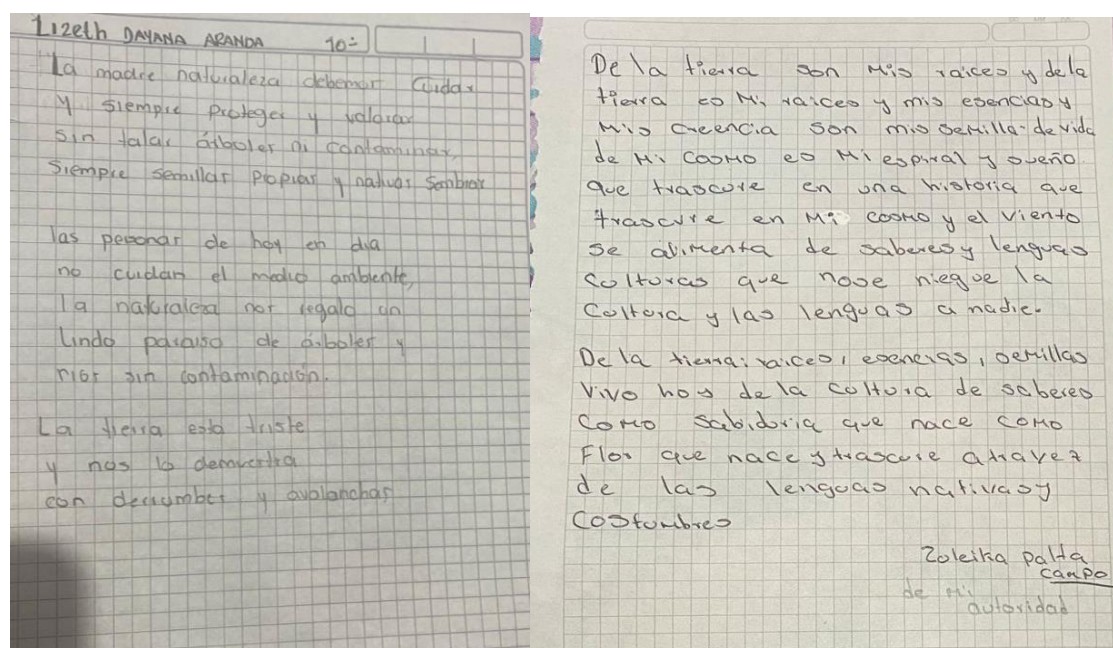 Lizeth DAYANA ARANDA 10=
La madre naturaleza debemos cuidar
y siempre proteger y valorar
sin talar árboles ni contaminar,
siempre semillas propias y nativas sembrar
las personas de hoy en dia
no cuidan el medio ambiente,
la naturaleza nos regalo un
lindo paraiso de árboles y
rios sin contaminación.
La tierra esta triste
y nos lo demuestra
con derrumbes y avalanchas
De la tierra son Mis raices y dela
tierra es Mi raices y mis esencias y
Mis Creencia son mis semilla de vida
de Mi Cosmo es Mi espiral y sueño
que trascure en una historia que
trascure en Mi cosmo y el viento
se alimenta de saberes y lenguas
Colturas que nose niegue la
Coltura y las lenguas a nadie.
De la tierra: raices, esencias, semillas
Vivo hoy de la coltura de saberes
Como Sabidoria que nace como
Flor que nace y trascure atravez
de las lenguas nativas y
Costumbres
Zoleika Palta
Campo
de Mi
autoridad